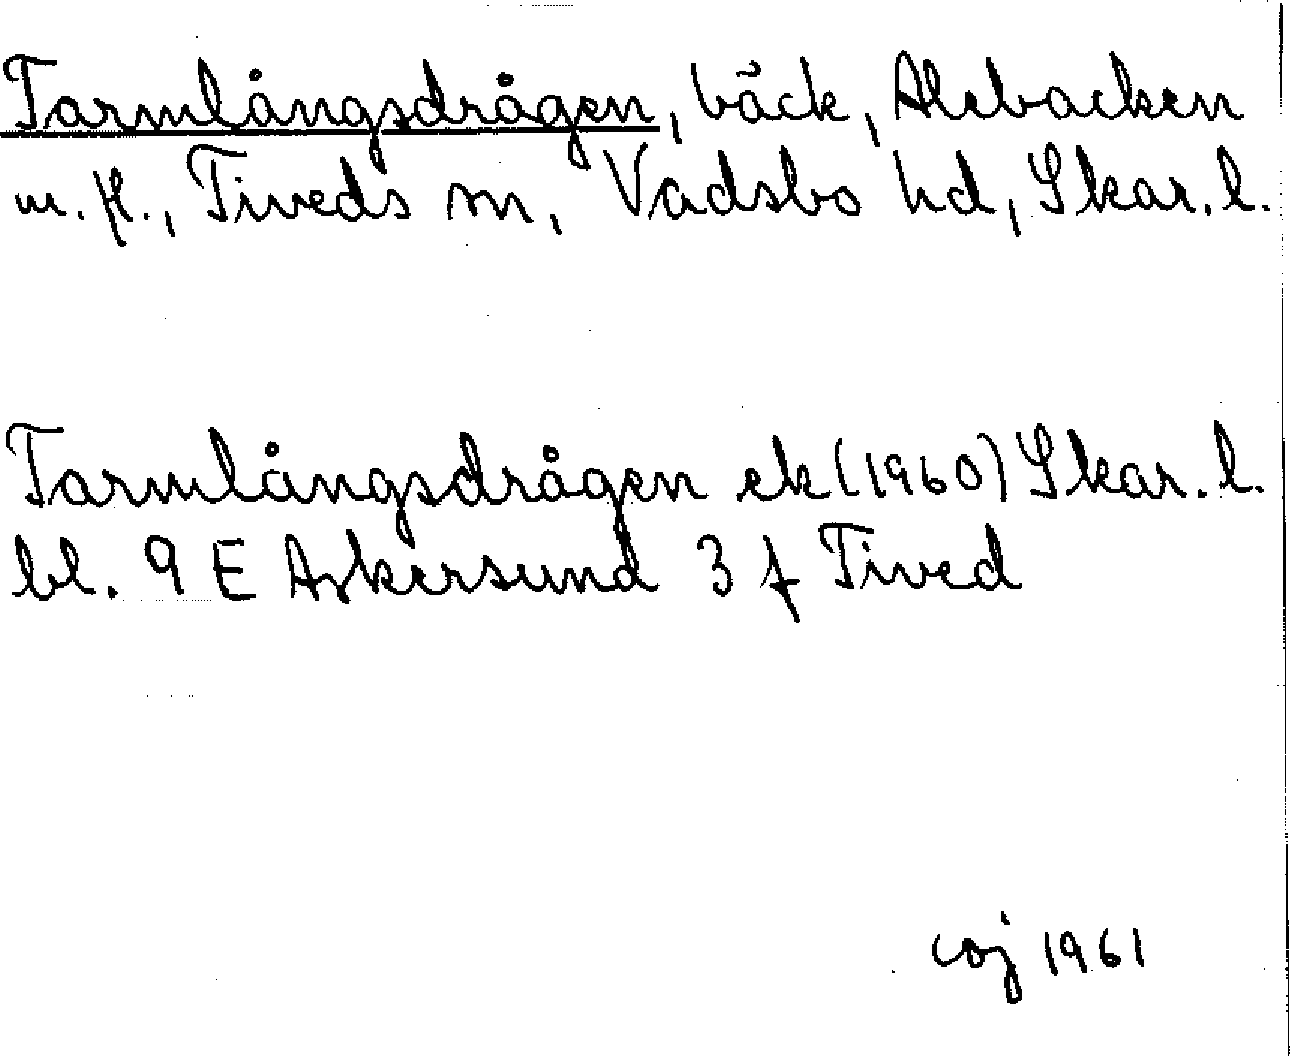 Tarmlångsdrågen, bäck, Alebacken
m. fl., Tiveds sn, Vadsbo hd, Skar. l.
Tarmlångsdrågen ek (1960) Skar. l.
bl. 9 E Askersund 3 f Tived
coj 1961